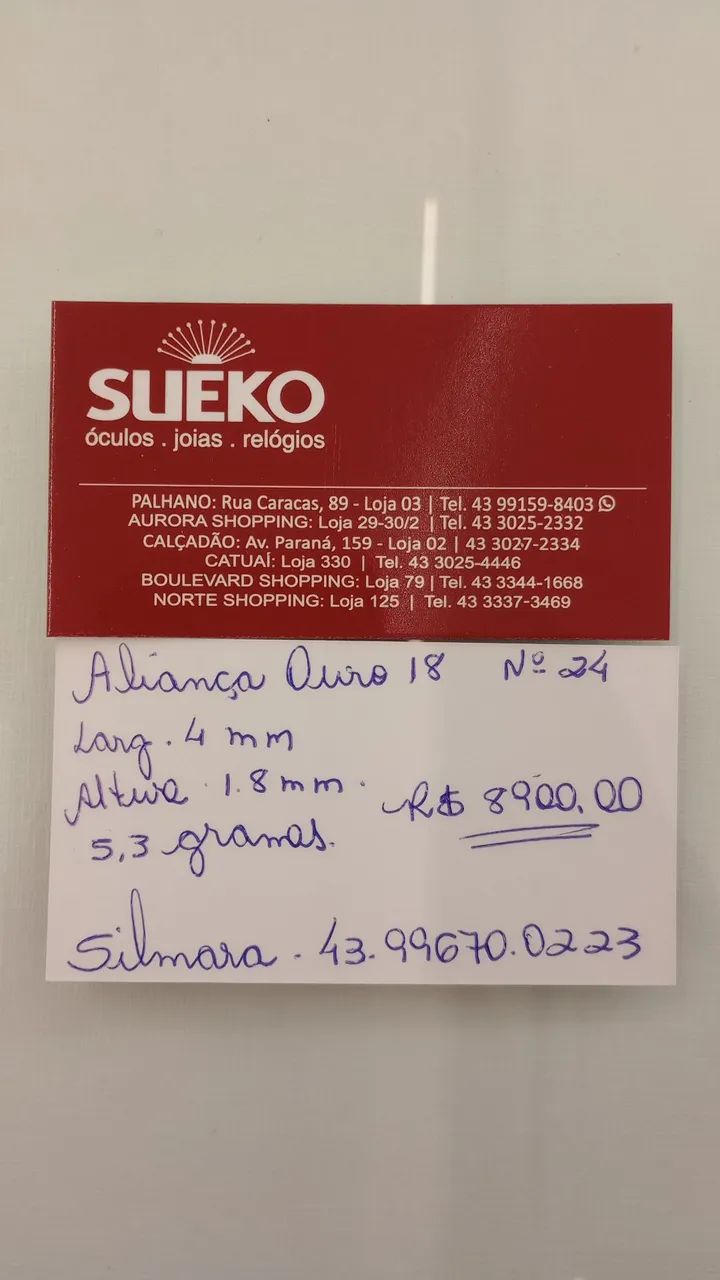 SUEKO
óculos . joias . relógios
PALHANO: Rua Caracas, 89 - Loja 03 | Tel. 43 99159-8403
AURORA SHOPPING: Loja 29-30/2 | Tel. 43 3025-2332
CALÇADÃO: Av. Paraná, 159 - Loja 02 | 43 3027-2334
CATUAÍ: Loja 330 | Tel. 43 3025-4446
BOULEVARD SHOPPING: Loja 79 | Tel. 43 3344-1668
NORTE SHOPPING: Loja 125 | Tel. 43 3337-3469
Aliança Ouro 18 Nº 24
Larg. 4 mm
Altura 1.8 mm.
R$ 8900,00
5,3 gramas.
Silmara . 43.99670.0223